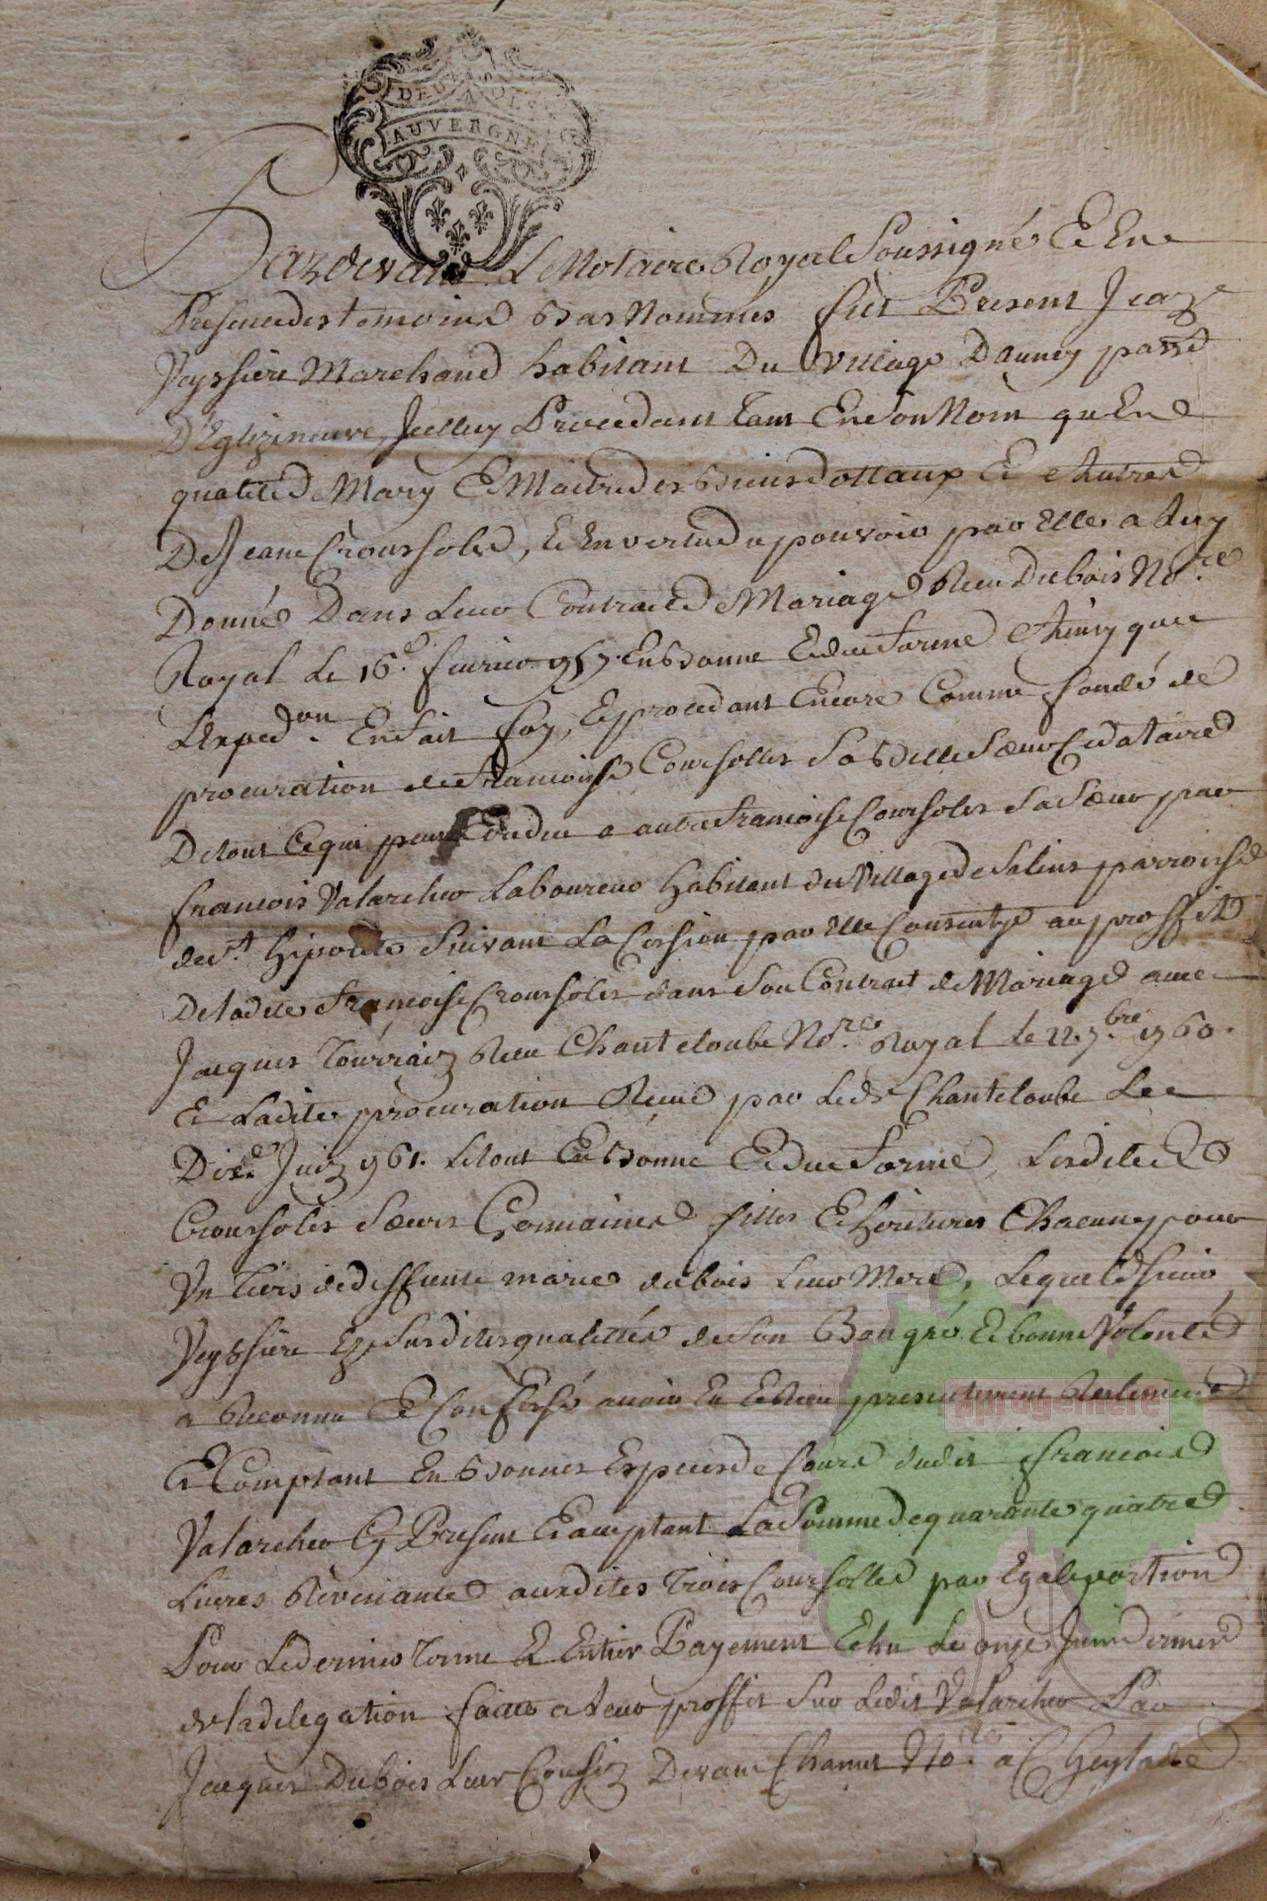 DEUX SOLS
AUVERGNE
Pardevant Le Notaire Royal Soussigné Et En
Presence des temoins Bas Nommés fut Present Jean
Veyssiere Marchand habitant Du Village Dauney parsse
D'Eglizeneuve, Jcelluy Procedant tant En Son Nom qu'En
qualité de Mary Et Maitre des Biens dottaux Et Autres
De Jeane Croursoles, Et En vertu du pouvoir par Elle a luy
Donné Dans Leur Contrait de Mariage Reçu Dubois No.re
Royal Le 16.e fevrier 1757 En Bonne Et due forme Ainsy que
L'Exped.on En fait foy, Et procedant Encore Comme fondé de
procuration de francoise Coursolles Sa Belle Sœur Cedataire
De tout Ce qui peut Etre du a autre francoise Coursoles Sa Sœur par
francois Valarcher Laboureur Habitant du Village de Salins parroisse
de St. Hipolite Suivant La Cession par Elle Consentye au proffit
De ladite francoise Croursoles dans Son Contrait de Mariage avec
Jacques Tourraix Reçu Chanteloube No.re Royal le 22 7.bre 1760.
Et Ladite procuration Reçue par Ledt Chanteloube Le
Dix.e Juin 1761. Le tout En Bonne Et due forme, Lesdites
Croursoles Sœurs Germaines filles Et héritieres Chacune pour
Un tiers de deffunte marie dubois Leur Mere, Lequel dt sieur
Veyssiere Ez Susdites qualittés de Son Bon gré Et bonne Volonté
a Reconnu Et Confessé avoir Eu Et Reçu presentement Reelement
Et Comptant En Bonnes Especes de Cours dudit francois
Valarcher Cy Present Et acceptant La Somme de quarante quatre
Livres Revenante auxdites trois Coursolles par Egale portion
Pour Le dernier terme Et Entier Payement Echu Le onze Juin dernier
de la delegation faitte a leur proffit Sur Ledit Valarcher Par
Jacques Dubois Leur Cousin Devant Chamet No.re a Cheylade
Aprogemere